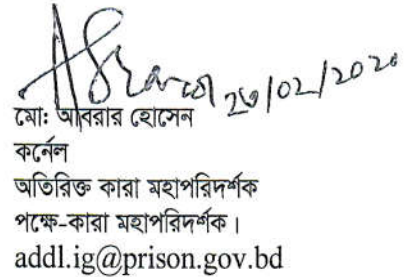 ২৬/০২/২০২০
মো: আবরার হোসেন
কর্নেল
অতিরিক্ত কারা মহাপরিদর্শক
পক্ষে-কারা মহাপরিদর্শক।
addl.ig@prison.gov.bd